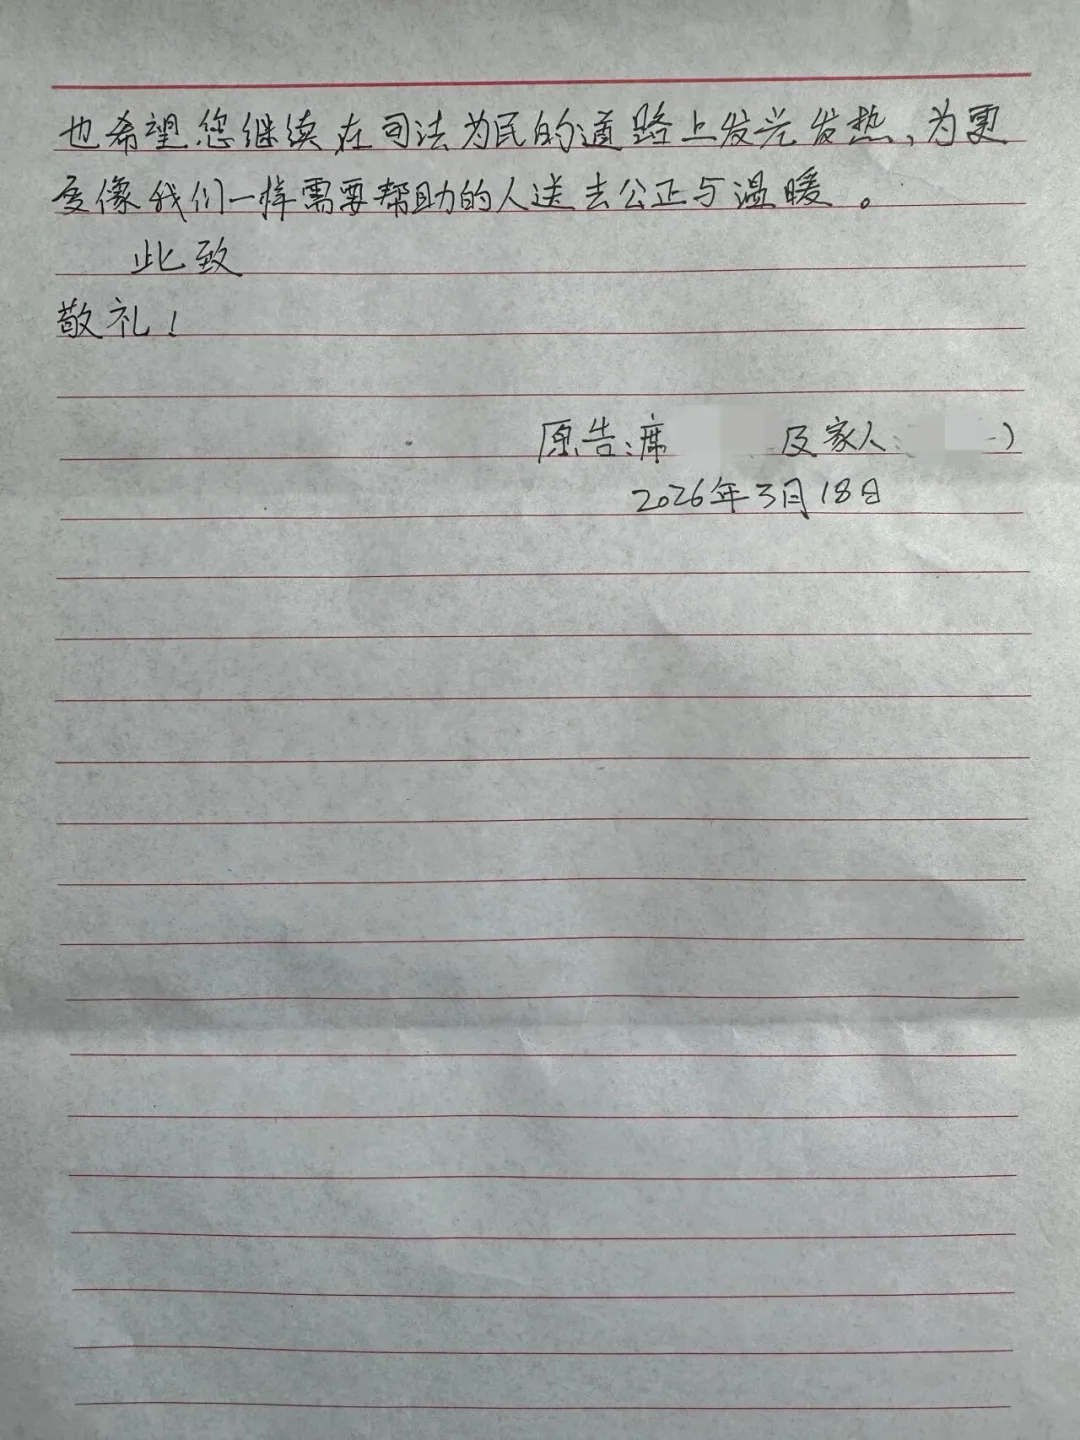 也希望您继续在司法为民的道路上发光发热，为更
多像我们一样需要帮助的人送去公正与温暖。
此致
敬礼！
原告：席 及家人： ）
2026年3月18日